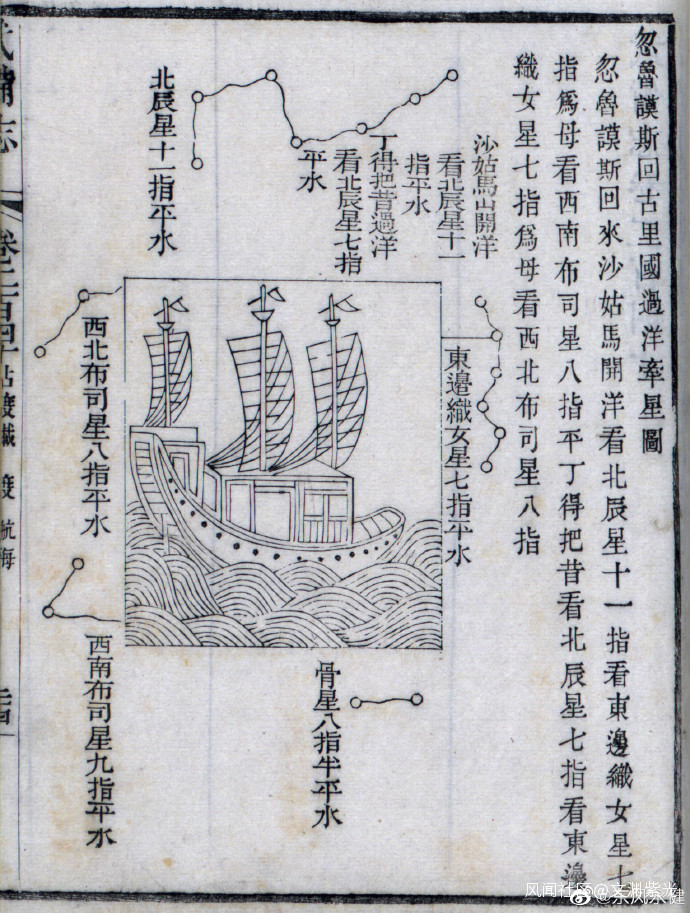 忽魯謨斯回古里國過洋牽星圖
忽魯謨斯回來沙姑馬開洋看北辰星十一指看東邊織女星七
指爲母看西南布司星八指平丁得把昔看北辰星七指看東邊
織女星七指爲母看西北布司星八指
沙姑馬山開洋
看北辰星十一
指平水
丁得把昔過洋
看北辰星七指
平水
北辰星十一指平水
東邊織女星七指平水
骨星八指半平水
西北布司星八指平水
西南布司星九指平水
備志
卷二百四十
度 航海
风闻社区@文渊紫光